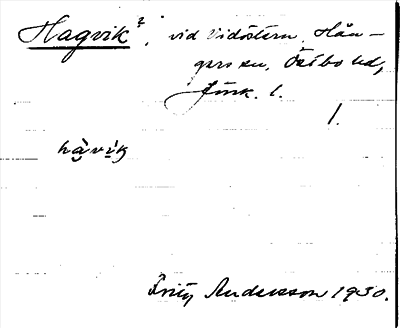 Hagvik?, vid Vidöstern, Hån-
gers sn, Östbo hd,
Jönk. l.
1.
hàvik
Fritz Andersson 1930.